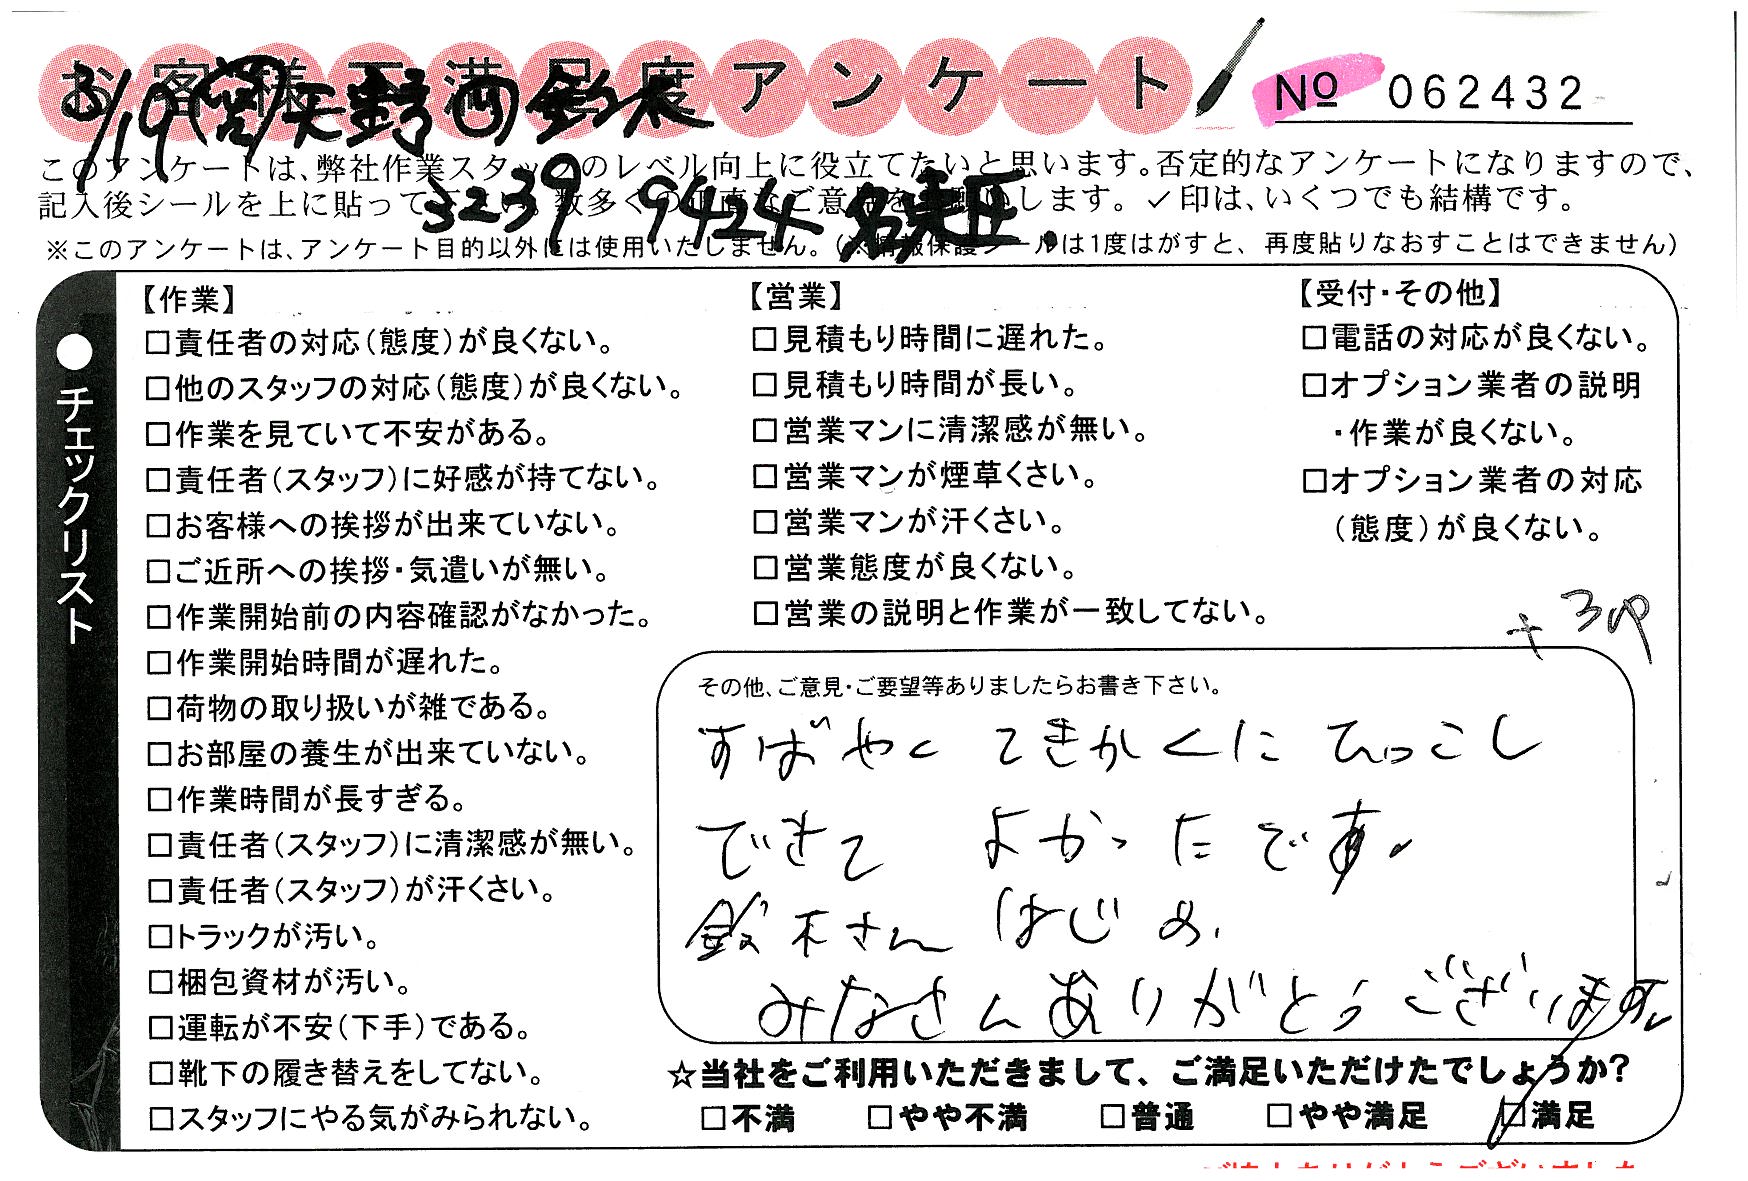 お客様不満足度アンケート
№ 062432
3/19
このアンケートは、弊社作業スタッフのレベル向上に役立てたいと思います。否定的なアンケートになりますので、
記入後シールを上に貼って下さい。数多くの正直なご意見をお願いします。✓印は、いくつでも結構です。
3239 9424
※このアンケートは、アンケート目的以外には使用いたしません。(※情報保護シールは1度はがすと、再度貼りなおすことはできません)
●チェックリスト
【作業】
□責任者の対応(態度)が良くない。
□他のスタッフの対応(態度)が良くない。
□作業を見ていて不安がある。
□責任者(スタッフ)に好感が持てない。
□お客様への挨拶が出来ていない。
□ご近所への挨拶・気遣いが無い。
□作業開始前の内容確認がなかった。
□作業開始時間が遅れた。
□荷物の取り扱いが雑である。
□お部屋の養生が出来ていない。
□作業時間が長すぎる。
□責任者(スタッフ)に清潔感が無い。
□責任者(スタッフ)が汗くさい。
□トラックが汚い。
□梱包資材が汚い。
□運転が不安(下手)である。
□靴下の履き替えをしてない。
□スタッフにやる気がみられない。
【営業】
□見積もり時間に遅れた。
□見積もり時間が長い。
□営業マンに清潔感が無い。
□営業マンが煙草くさい。
□営業マンが汗くさい。
□営業態度が良くない。
□営業の説明と作業が一致してない。
【受付・その他】
□電話の対応が良くない。
□オプション業者の説明
・作業が良くない。
□オプション業者の対応
(態度)が良くない。
+3P
その他、ご意見・ご要望等ありましたらお書き下さい。
すばやく てきかくに ひっこし
できて よかったです。
鈴木さん はじめ、
みなさんありがとうございます。
☆当社をご利用いただきまして、ご満足いただけたでしょうか?
□不満 □やや不満 □普通 □やや満足 ☑満足